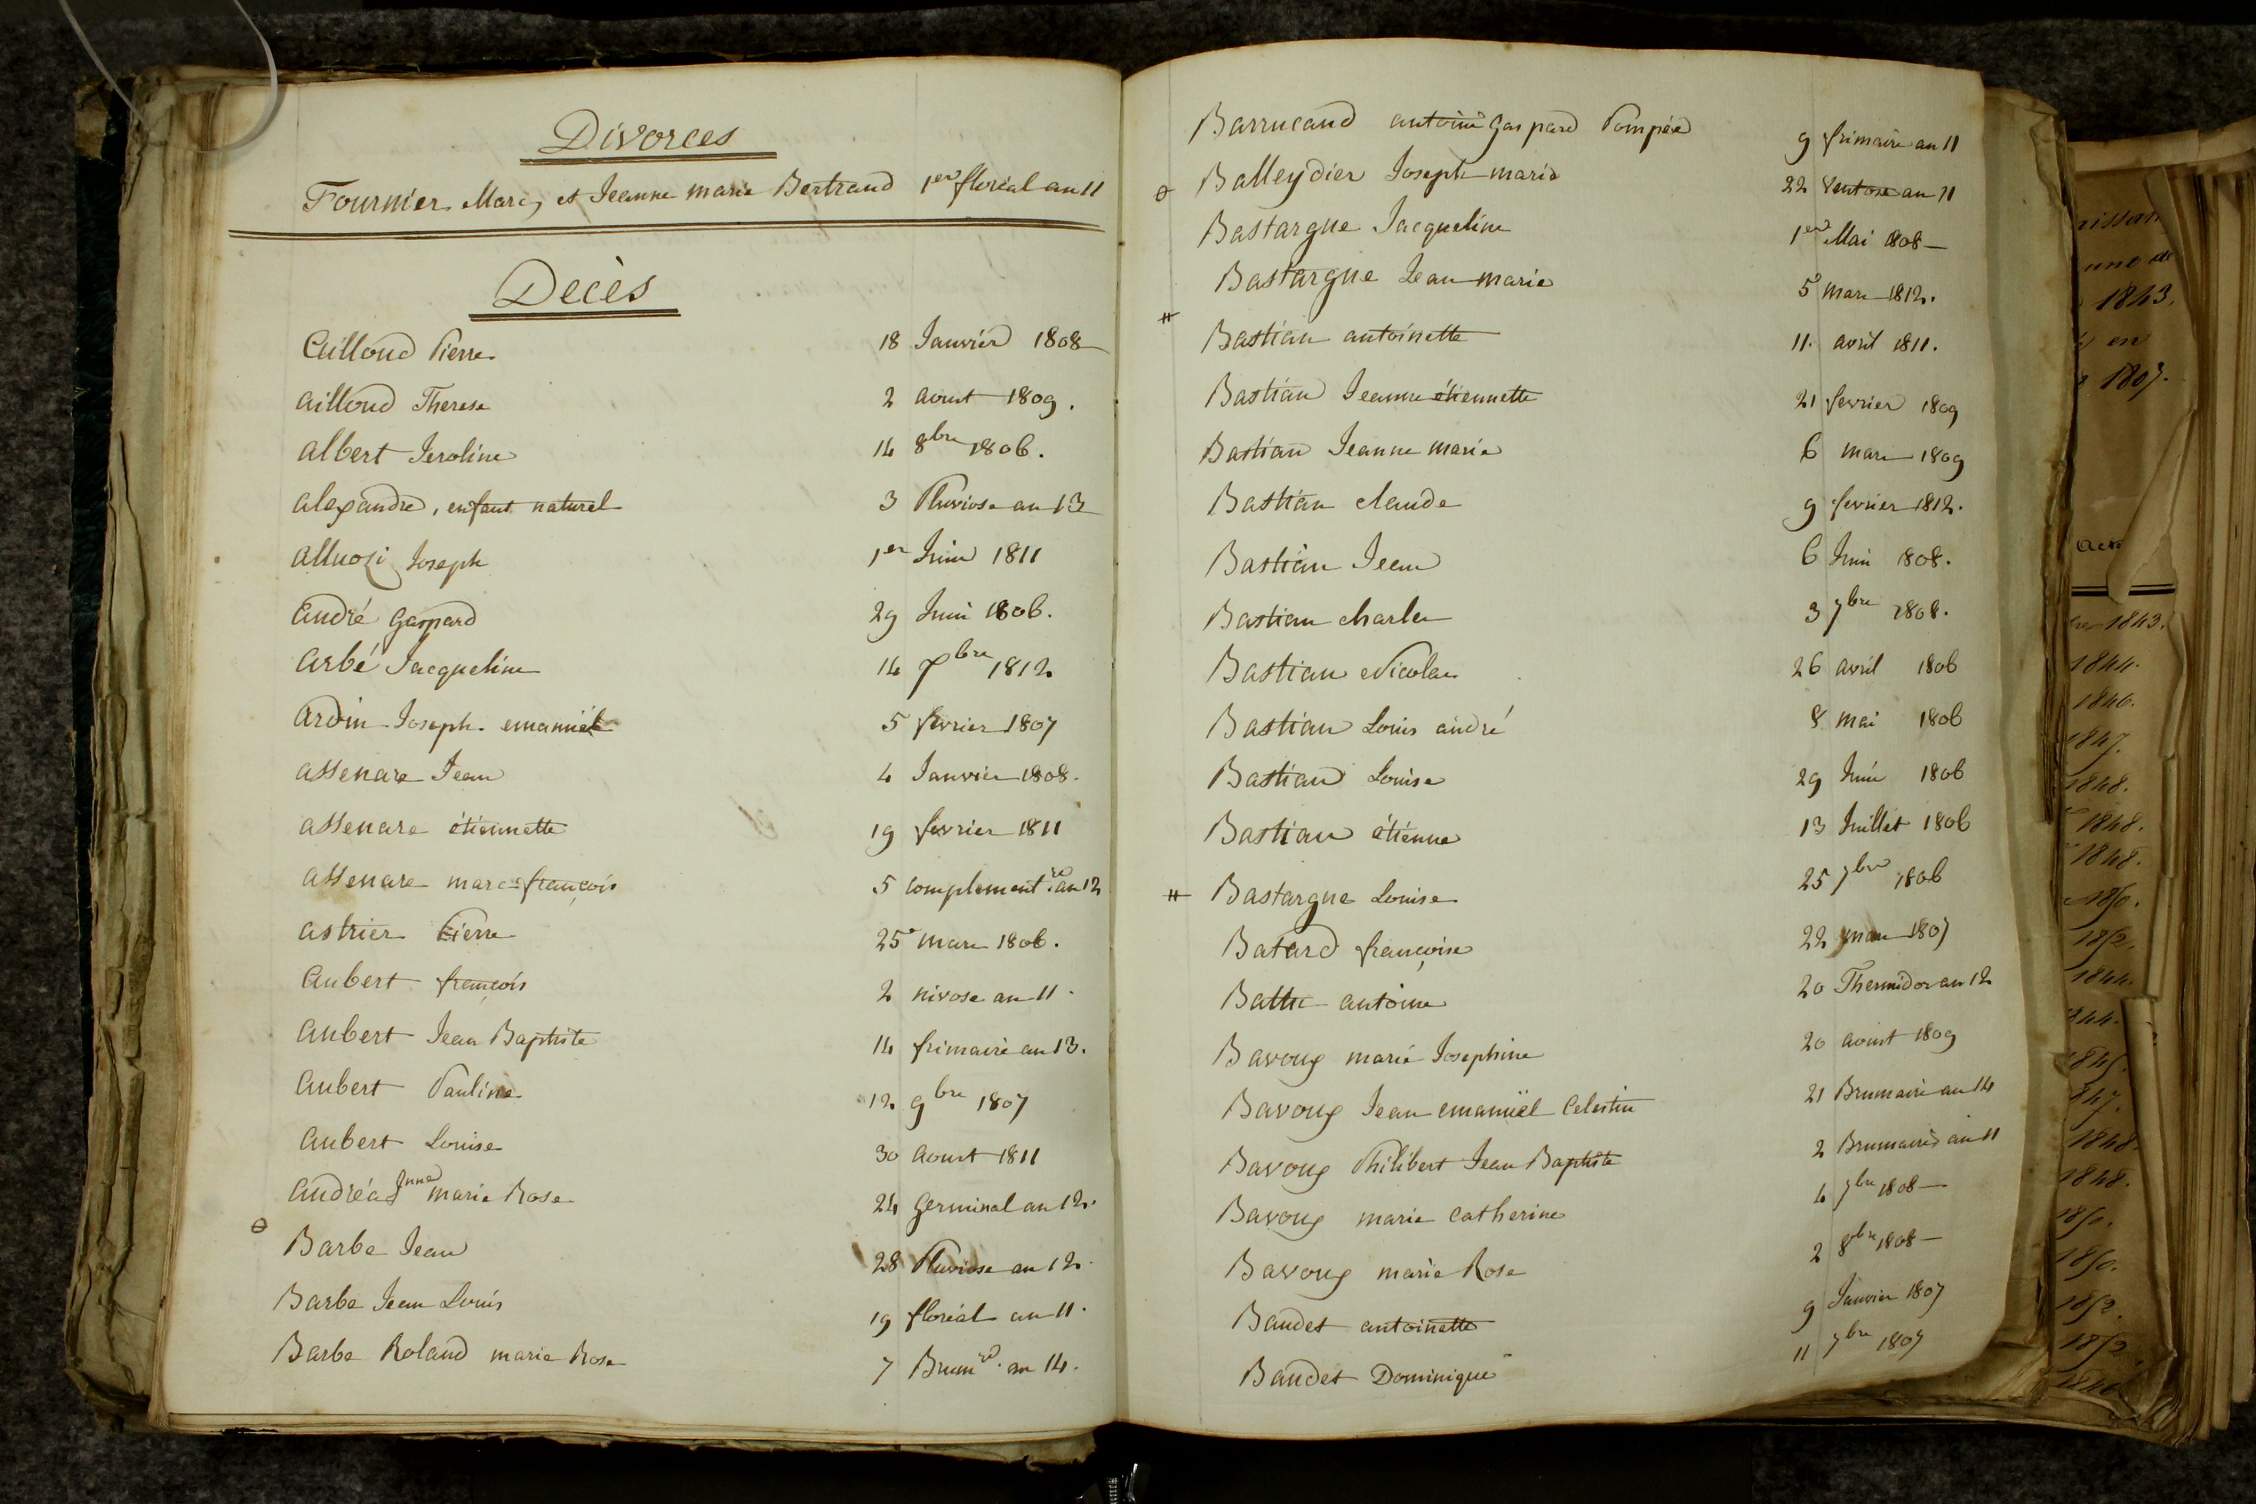 Divorces
Fournier Marc, et Jeanne marie Bertrand 1er floréal an 11
Décès
Ailloud Pierre 18 Janvier 1808
Ailloud Therese 2 aoust 1809.
Albert Jeroline 14 8bre 1806.
Alexandre, enfant naturel 3 Pluviose an 13
Joseph 1er Juin 1811
André Gaspard 29 Juin 1806.
Arbé Jacqueline 14 7bre 1812
Ardin Joseph emanuël 5 fevrier 1807
Assenare Jean 4 Janvier 1808.
Assenare étiennette 19 fevrier 1811
Assenare marc françois 5 complement.re an 12
Astrier Pierre 25 mars 1806.
Aubert françois 2 nivose an 11.
Aubert Jean Baptiste 14 frimaire an 13.
Aubert Pauline 12 9bre 1807
Aubert Louise 30 aoust 1811
Andréa Jnne marie Rose 24 germinal an 12.
Barbe Jean 28 Pluviose an 12.
Barbe Jean Louis 19 floréal an 11.
Barbe Roland marie Rose 7 Brumre. an 14.
Barrucand antoine Gaspard Pompée 9 frimaire an 11
Balleydier Joseph marie 22 Ventose an 11
Bastargue Jacqueline 1er Mai 1808
Bastargue Jean marie 5 mars 1812.
Bastian antoinette 11. avril 1811.
Bastian Jeanne étiennette 21 fevrier 1809
Bastian Jeanne marie 6 mars 1809
Bastian claude 9 fevrier 1812.
Bastian Jean 6 Juin 1808.
Bastian charles 3 7bre 1808.
Bastian Nicolas 26 avril 1806
Bastian Louis andré 8 mai 1806
Bastian Louise 29 Juin 1806
Bastian étienne 13 Juillet 1806
Bastargue Louise 25 7bre 1806
Batard françoise 22 mars 1807
antoine 20 Thermidor an 12
Bavoux marie Josephine 20 aoust 1809
Bavoux Jean emanuël Celestin 21 Brumaire an 14
Bavoux Philibert Jean Baptiste 2 Brumaire an 11
Bavoux marie catherine 4 7bre 1808
Bavoux marie Rose 2 8bre 1808
Baudet antoinette 9 Janvier 1807
Baudet Dominique 11 7bre 1807